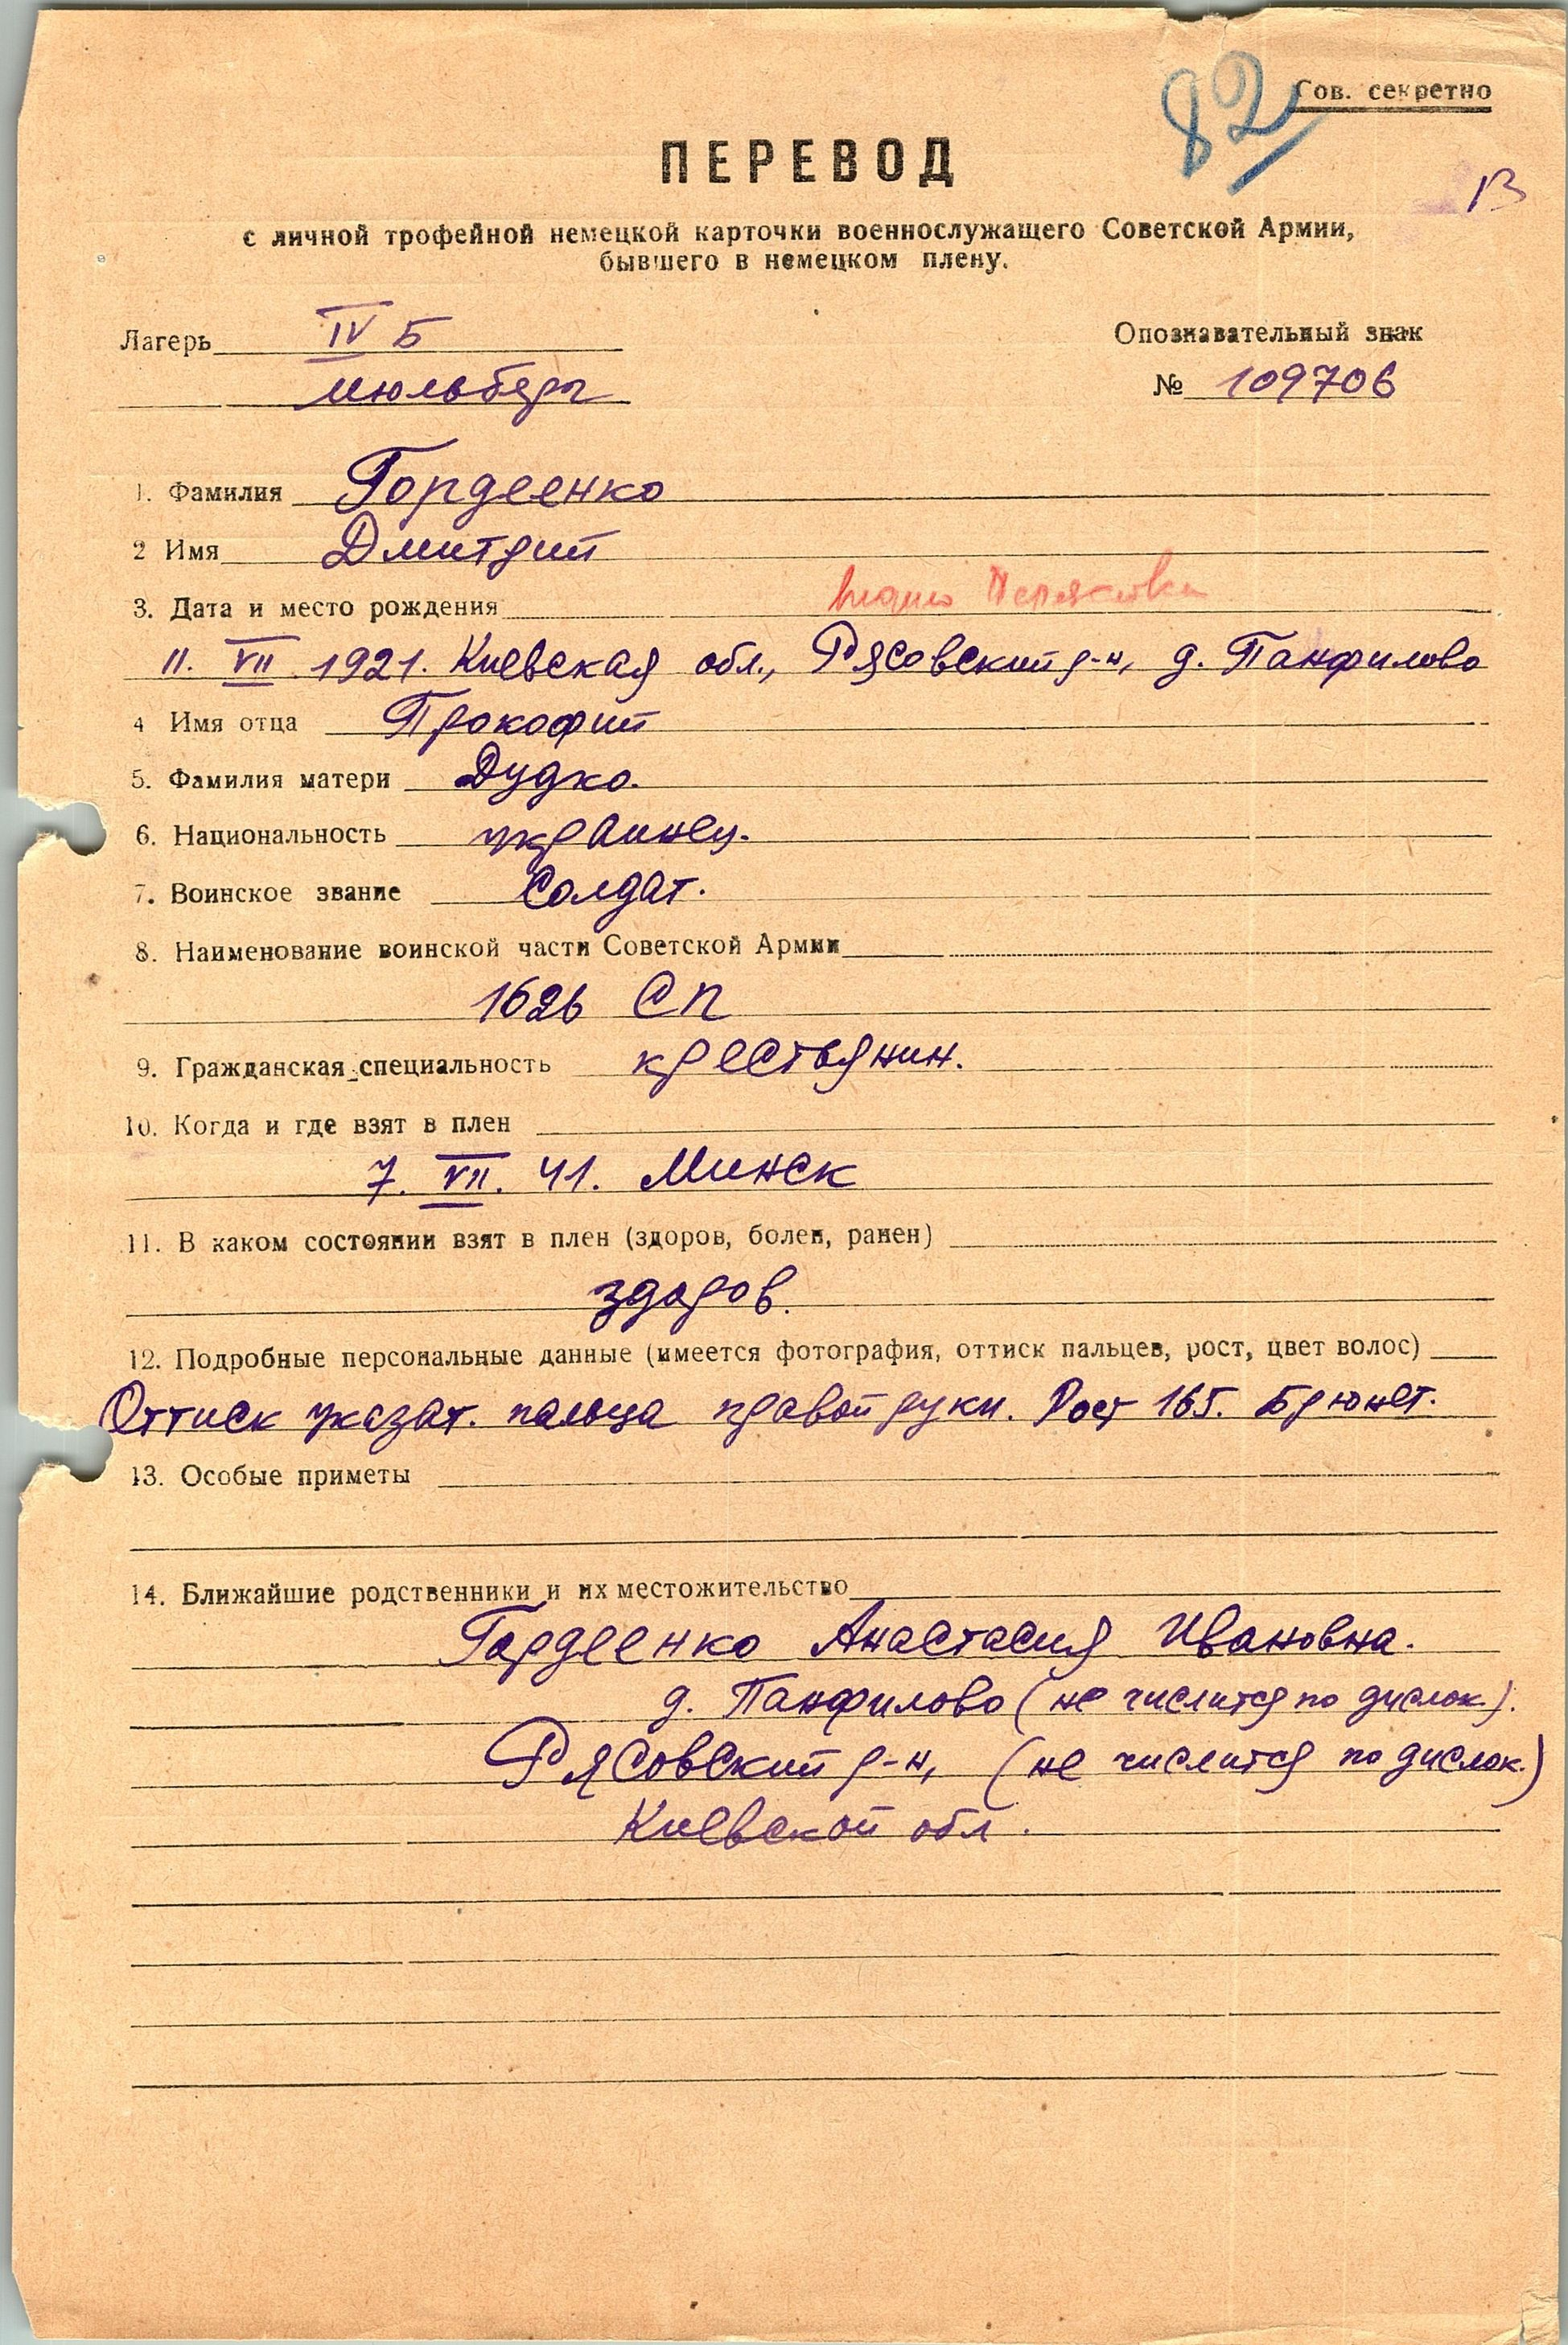 82
Сов. секретно
ПЕРЕВОД
с личной трофейной немецкой карточки военнослужащего Советской Армии,
бывшего в немецком плену.
Лагерь IV Б
Мюльберг
Опознавательный знак
№ 109706
1. Фамилия Гордеенко
2 Имя Дмитрий
3. Дата и место рождения
11. VII 1921. Киевская обл., Рясовский р-н, д. Панфилово
4 Имя отца Прокофий
5. Фамилия матери Дудко.
6. Национальность украинец.
7. Воинское звание Солдат.
8. Наименование воинской части Советской Армии
162в СП
9. Гражданская специальность крестьянин.
10. Когда и где взят в плен
7. VII. 41. Минск
11. В каком состоянии взят в плен (здоров, болен, ранен)
здоров.
12. Подробные персональные данные (имеется фотография, оттиск пальцев, рост, цвет волос)
Оттиск указат. пальца правой руки. Рост 165. Брюнет.
13. Особые приметы
14. Ближайшие родственники и их местожительство
Гордеенко Анастасия Ивановна.
д. Панфилово (не числится по дислок.).
Рясовский р-н, (не числится по дислок.)
Киевской обл.